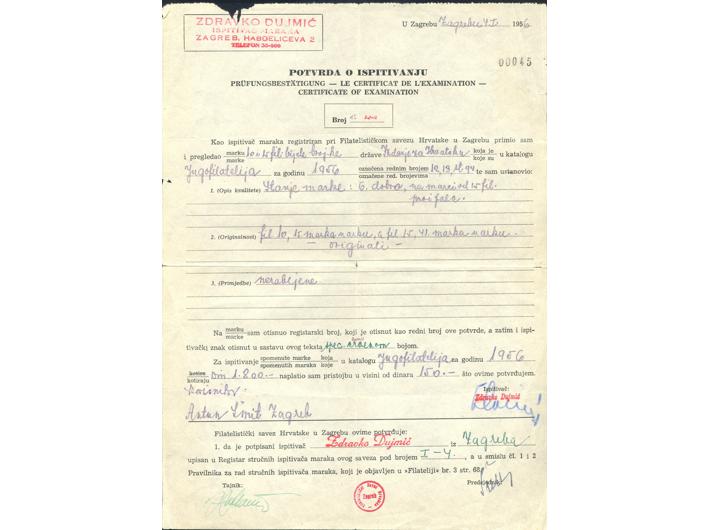 ZDRAVKO DUJMIĆ
ISPITIVAČ MARAKA
ZAGREB, HABDELIĆEVA 2
TELEFON 35-600
U Zagrebu Zagreb 4. I. 1956
00045
POTVRDA O ISPITIVANJU
PRÜFUNGSBESTÄTIGUNG — LE CERTIFICAT DE L'EXAMINATION —
CERTIFICATE OF EXAMINATION
Broj
Kao ispitivač maraka registriran pri Filatelističkom savezu Hrvatske u Zagrebu primio sam
i pregledao marku marke 10 i 15 fil bijele brojke države Izdanje za Hrvatsku koja je koje su u katalogu
Jugofilatelija za godinu 1956 označena rednim brojem označene red. brojevima te sam ustanovio:
1. (Opis kvalitete) Stanje marke : 6. dobra, na marci od 15 fil.
2. (Originalnost) fil 10, 15 marka na arku, a fil 15, 41. marka na arku.
— originali —
3. (Primjedbe) nerabljene
Na marku marke sam otisnuo registarski broj, koji je otisnut kao redni broj ove potvrde, a zatim i ispi-
tivački znak otisnut u sastavu ovog teksta spec. bojom.
Za ispitivanje spomenute marke spomenutih maraka koja koje u katalogu Jugofilatelija za godinu 1956
kotira kotiraju Din 1.800.— naplatio sam pristojbu u visini od dinara 150.— što ovime potvrđujem.
Ispitivač:
Zdravko Dujmić
Antun Zagreb
Filatelistički savez Hrvatske u Zagrebu ovime potvrđuje:
1. da je potpisani ispitivač Zdravko Dujmić iz Zagreba
upisan u Registar stručnih ispitivača maraka ovog saveza pod brojem I-4. , a u smislu čl. 1 i 2
Pravilnika za rad stručnih ispitivača maraka, koji je objavljen u »Filateliji« br. 3 str. 68.
Tajnik:
Predsjednik:
Zagreb